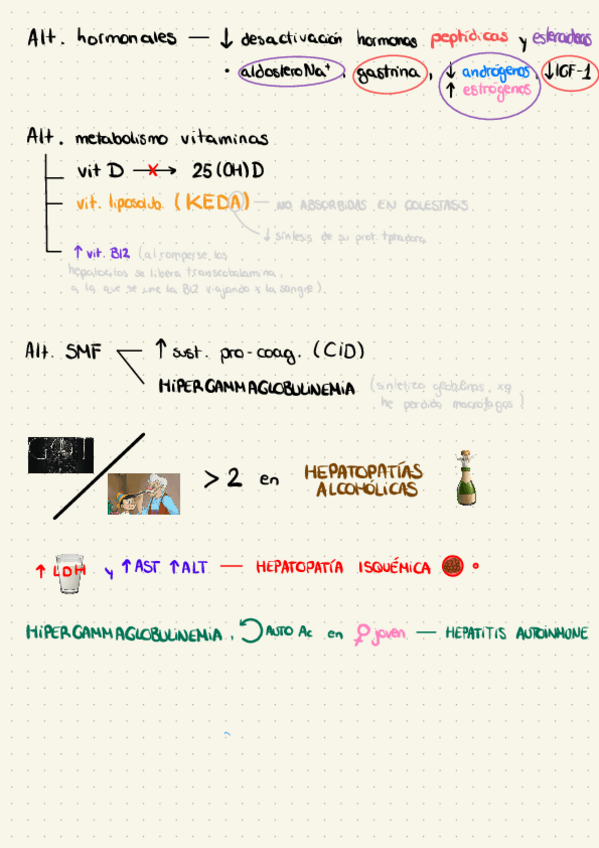 Alt. hormonales — ↓ desactivación hormonas peptídicas y esteroideas
• aldosteroNa⁺, gastrina, ↓ andrógenos, ↓IGF-1
↑ estrógenos
Alt. metabolismo vitaminas
vit D → 25(OH)D
vit. liposolub. (KEDA) — NO ABSORBIDAS EN COLESTASIS
↓ síntesis de su prot. tpradora
↑ vit. B12 (al romperse los
hepatocitos se libera transcobalamina,
a la que se une la B12 viajando x la sangre).
Alt. SMF
↑ sust. pro-coag. (CiD)
HiPERGAMMAGLOBULiNEMiA (sintetizo globulinas, xq
he perdido macrófagos)
>2 en HEPATOPATÍAS
ALCOHÓLICAS
↑ LDH y ↑AST ↑ALT — HEPATOPATÍA ISQUÉMICA
HiPERGAMMAGLOBULiNEMiA, AUTO Ac en ♀ joven — HEPATITIS AUTOiNMUNE